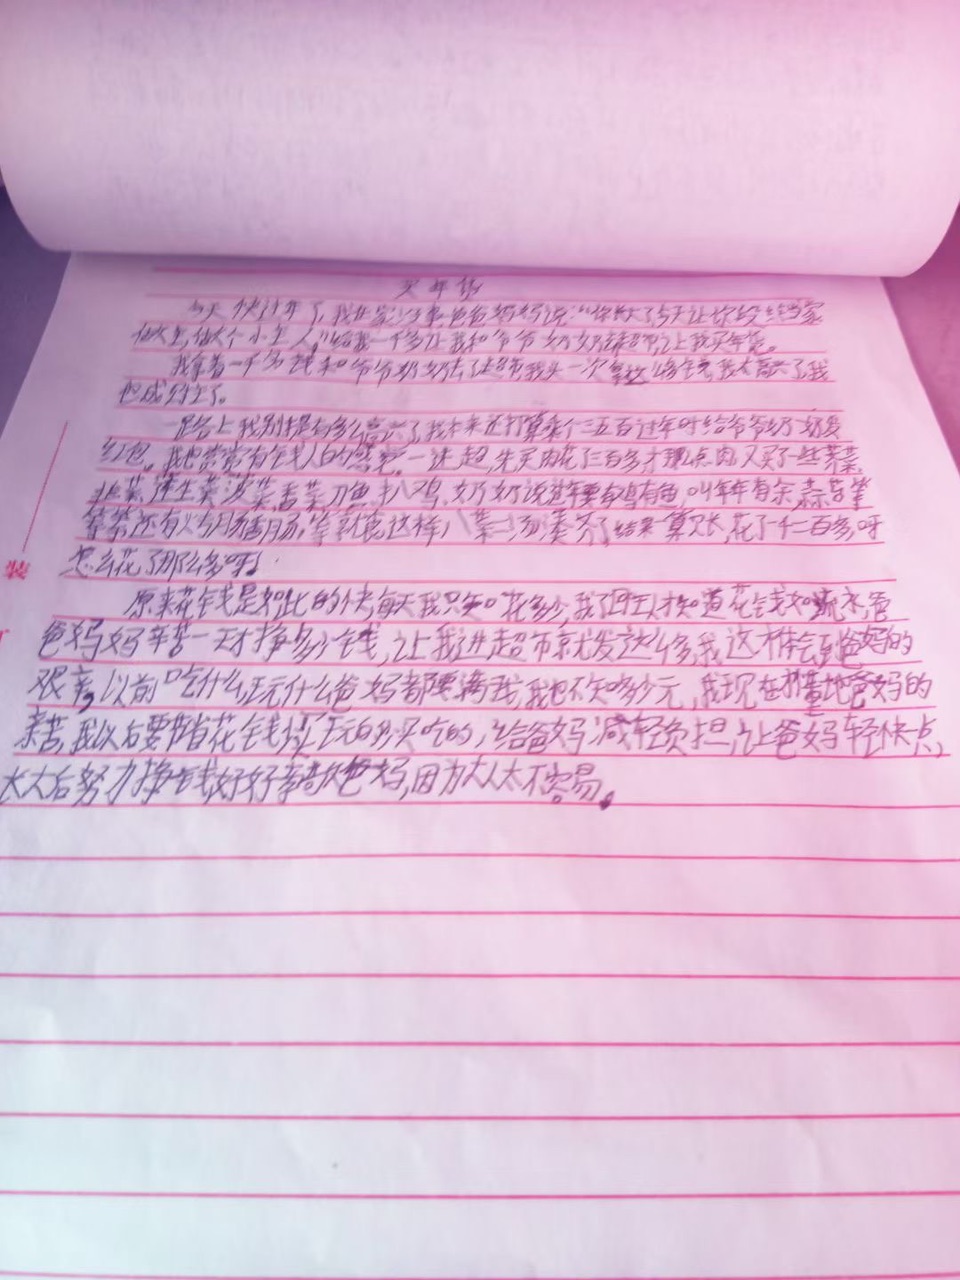 买年货
今天快过年了,我在家没事,爸爸妈妈说:"你长大了今天让你当家
做主,做个小主人,"给我一千多让我和爷爷奶奶逛超市,让我买年货。
我拿着一千多钱和爷爷奶奶去逛超市我头一次拿这么多钱我太高兴了我
也成财主了。
一路上我别提有多么高兴了我本来还打算剩个三五百过年时给爷爷奶奶发
红包。我也尝尝有钱人的感觉。一进超,先买肉花了三百多才现点肉又买了一些芹菜
韭菜,洋生菜菠菜香菜刀鱼扒鸡,奶奶说过年要有鸡有鱼,叫年年有余,蒜苔
还有火香肠,等就食这样八菜二汤凑齐了结果一算账,花了一千二百多,呀
怎么花了那么多呀!
原来花钱是如此的快每天我只知花多少,我今天才知道花钱如流水,爸
爸妈妈辛苦一天才挣多少钱,让我进超市就发这么多,我这才体会到爸妈的
艰辛,以前吃什么玩什么爸妈都要满我,我也不知多少元,我现在才知爸妈的
亲苦,我以后要节省花钱少买玩的少买吃的,给爸妈减轻负担,让爸妈轻快点,
长大后努力挣钱好好孝敬爸妈,因为大人太不容易。
装